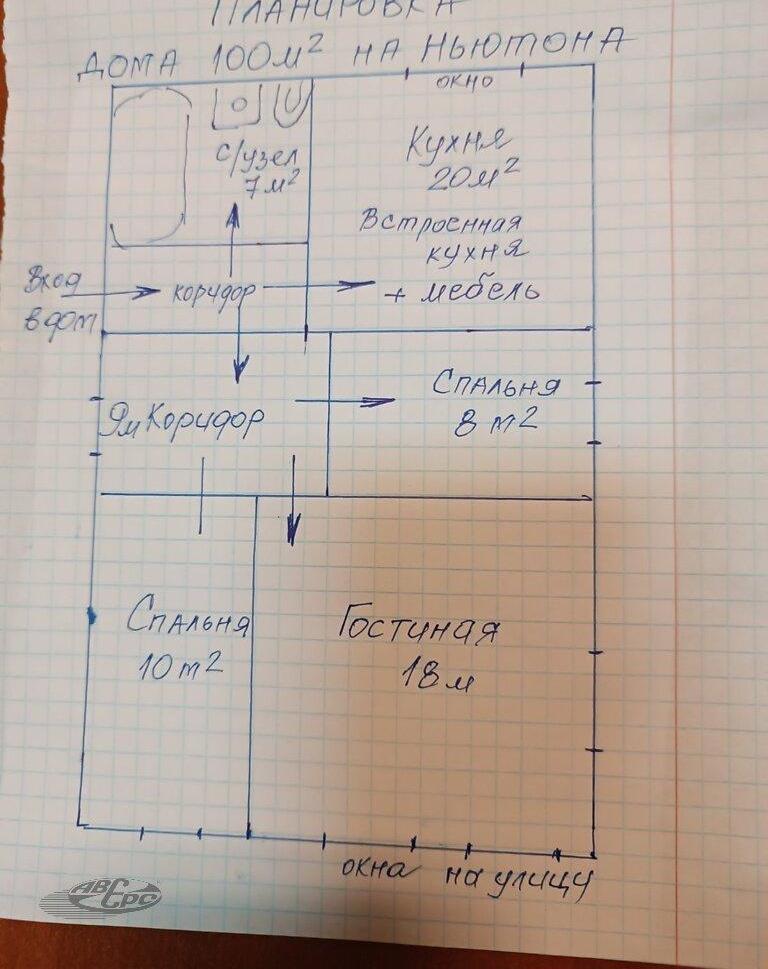 ПЛАНИРОВКА
ДОМА 100м² НА НЬЮТОНА
окно
с/узел
7м²
Кухня
20м²
Встроенная
кухня
+ мебель
Вход
в дом
коридор
9м Коридор
Спальня
8 m2
Спальня
10 m2
Гостиная
18м
окна на улицу
АВЕРС